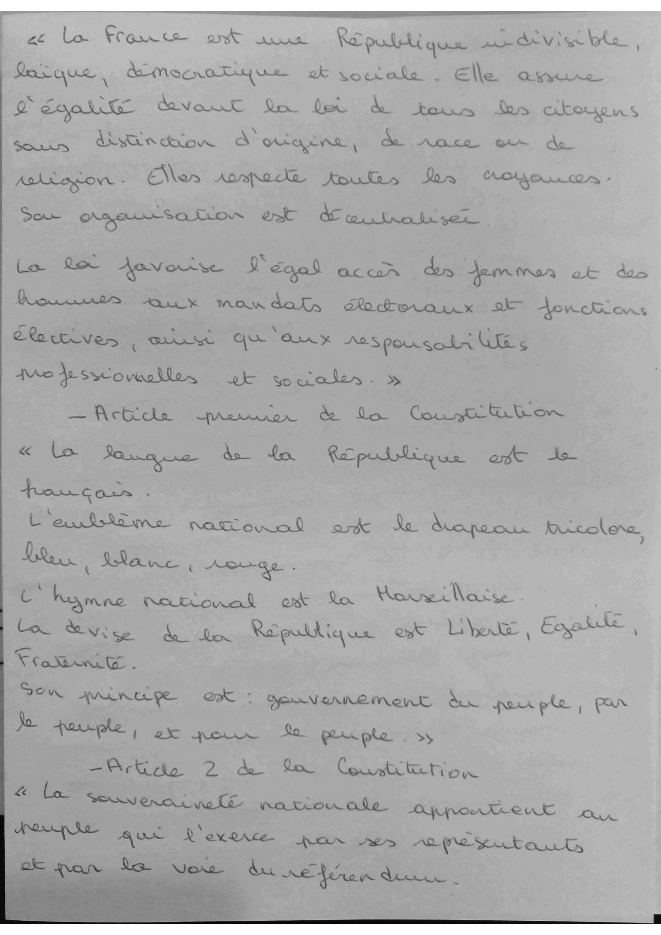 « La France est une République indivisible,
laïque, démocratique et sociale. Elle assure
l'égalité devant la loi de tous les citoyens
sans distinction d'origine, de race ou de
religion. Elles respecte toutes les croyances.
Son organisation est décentralisée.
La loi favorise l'égal accès des femmes et des
hommes aux mandats électoraux et fonctions
électives, ainsi qu'aux responsabilités
professionnelles et sociales. »
— Article premier de la Constitution
« La langue de la République est le
français.
L'emblème national est le drapeau tricolore,
bleu, blanc, rouge.
L'hymne national est la Marseillaise.
La devise de la République est Liberté, Egalité,
Fraternité.
Son principe est : gouvernement du peuple, par
le peuple, et pour le peuple. »
— Article 2 de la Constitution
« La souveraineté nationale appartient au
peuple qui l'exerce par ses représentants
et par la voie du référendum.